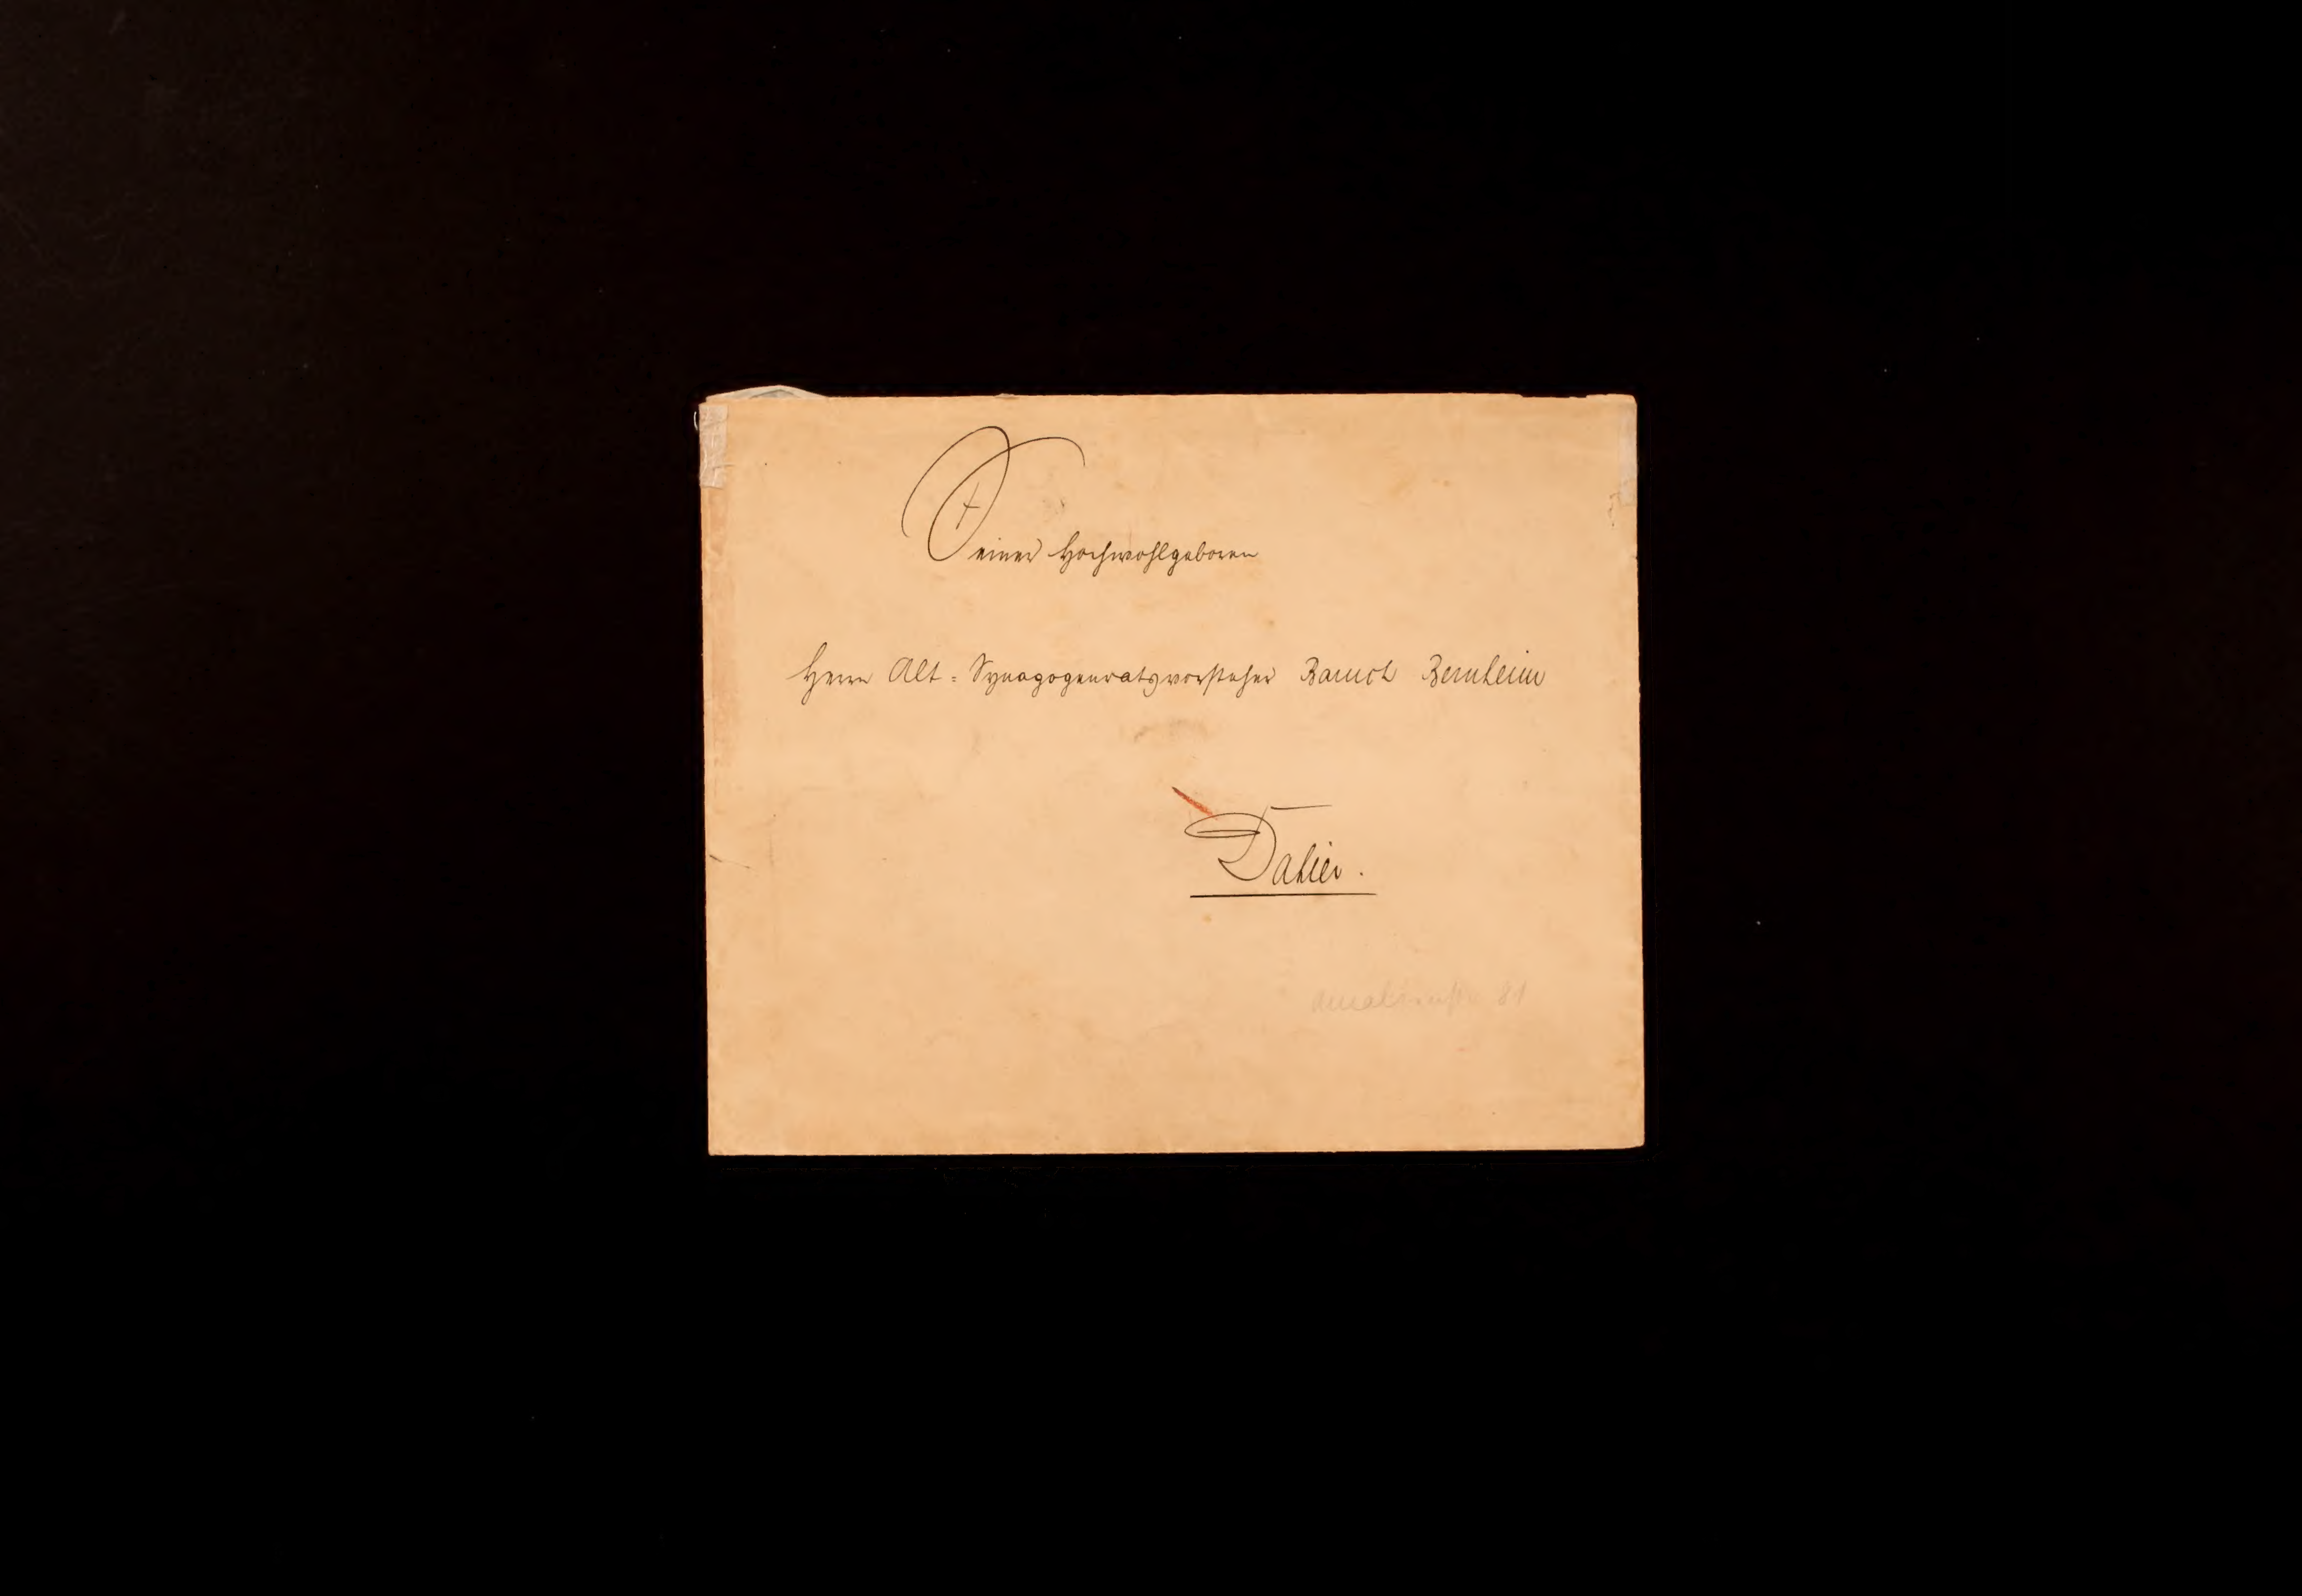 Seiner Hochwohlgeboren
Herrn Alt=Synagogenratsvorsteher Baruch Bernheim
Dahier.
Amalienstr. 81